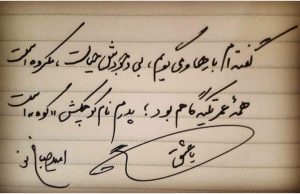 گفته‌ام بارها و می‌گویم، بی وجودش حیات، مکروه است
همهٔ عمر تکیه‌گاهم بود؛ پدرم نام کوچکش «کوه» است
یا عشق
امید صباغ نو